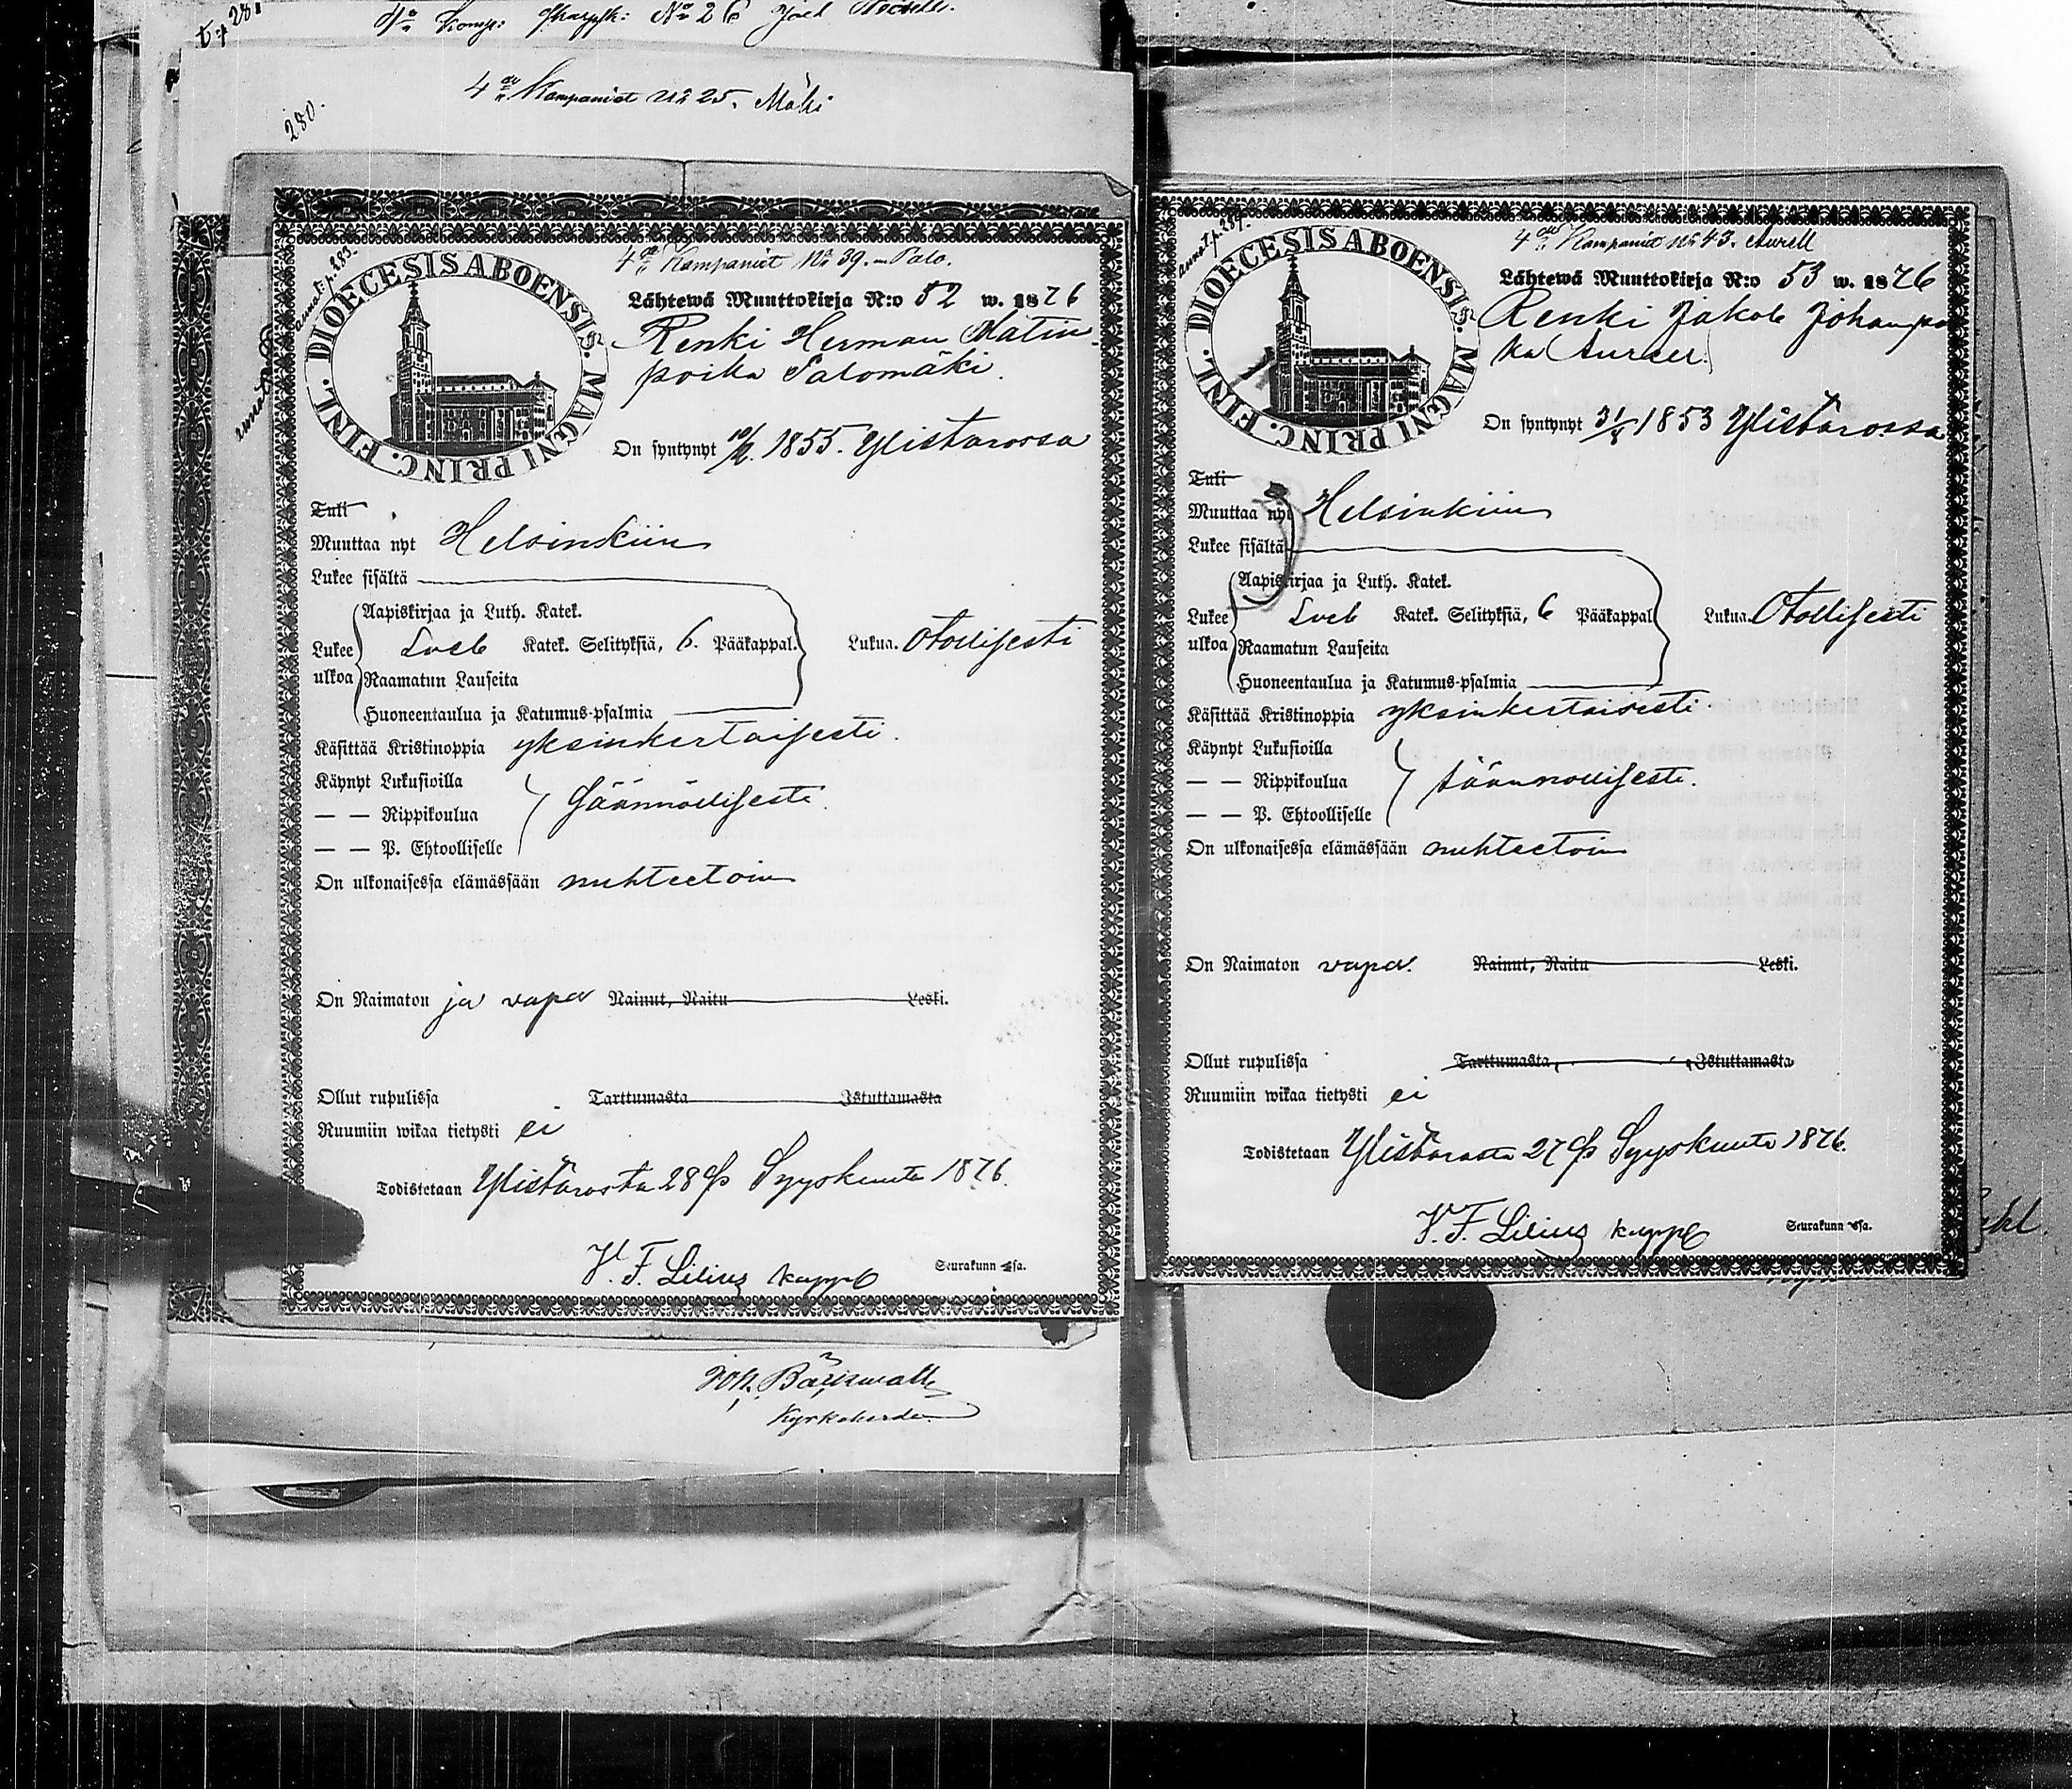 280.
4de Kompaniet No 25. Mäki
annot. p. 283.
DIOECESIS ABOENSIS. MAGNI PRINC. FINL.
4de Kompaniet No 39. Palo.
Lähtewä Muuttokirja N:o 52 w. 1876
Renki Herman Matin
poika Salomäki.
On syntynyt 10/2. 1855. Ylistarossa
Tuli
Muuttaa nyt Helsinkiin
Lukee sisältä
Aapiskirjaa ja Luth. Katek.
Lukee Sveb Katek. Selityksiä, 6. Pääkappal. Lukua. Otollisesti
ulkoa Raamatun Lauseita
Huoneentaulua ja Katumus-psalmia
Käsittää Kristinoppia yksinkertaisesti.
Käynyt Lukusioilla
— — Rippikoulua säännöllisesti.
— — P. Ehtoolliselle
On ulkonaisessa elämässään nuhteetoin
On Naimaton ja vapa Nainut, Naitu Leski.
Ollut rupulissa Tarttumasta Istuttamasta
Ruumiin wikaa tietysti ei
Todistetaan Ylistarosta 28 p Syyskuuta 1876.
V. F. Lilius kappl Seurakunn ssa.
Kyrkoherde
annot. p. 287.
DIOECESIS ABOENSIS. MAGNI PRINC. FINL.
4de Kompaniet No 43. Aurell
Lähtewä Muuttokirja N:o 53 w. 1876
Renki Jakob Johanpo
ika Aureer.
On syntynyt 31/8 1853 Ylistarossa
Tuli
Muuttaa nyt Helsinkiin
Lukee sisältä
Aapiskirjaa ja Luth. Katek.
Lukee Sveb Katek. Selityksiä, 6 Pääkappal Lukua. Otollisesti
ulkoa Raamatun Lauseita
Huoneentaulua ja Katumus-psalmia
Käsittää Kristinoppia yksinkertaisesti.
Käynyt Lukusioilla
— — Rippikoulua säännöllisesti.
— — P. Ehtoolliselle
On ulkonaisessa elämässään nuhteetoin
On Naimaton vapa. Nainut, Naitu Leski.
Ollut rupulissa Tarttumasta, Istuttamasta
Ruumiin wikaa tietysti ei
Todistetaan Ylistarosta 27 p Syyskuuta 1876.
V. F. Lilius kappl Seurakunn ssa.